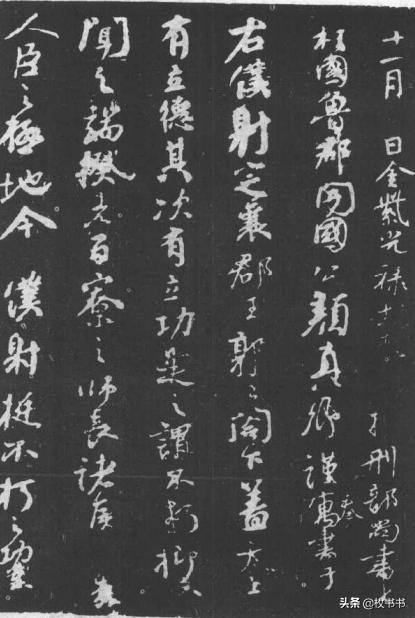 十一月 日金紫光禄大夫 行刑部尚書上
柱國魯郡開國公顏真卿謹寓書于
右僕射定襄郡王郭公閤下蓋太上
有立德其次有立功是之謂不朽抑又
聞之端揆者百寮之師長諸侯王者
人臣之極地今 僕射挺不朽之功業
头条 @枚书书